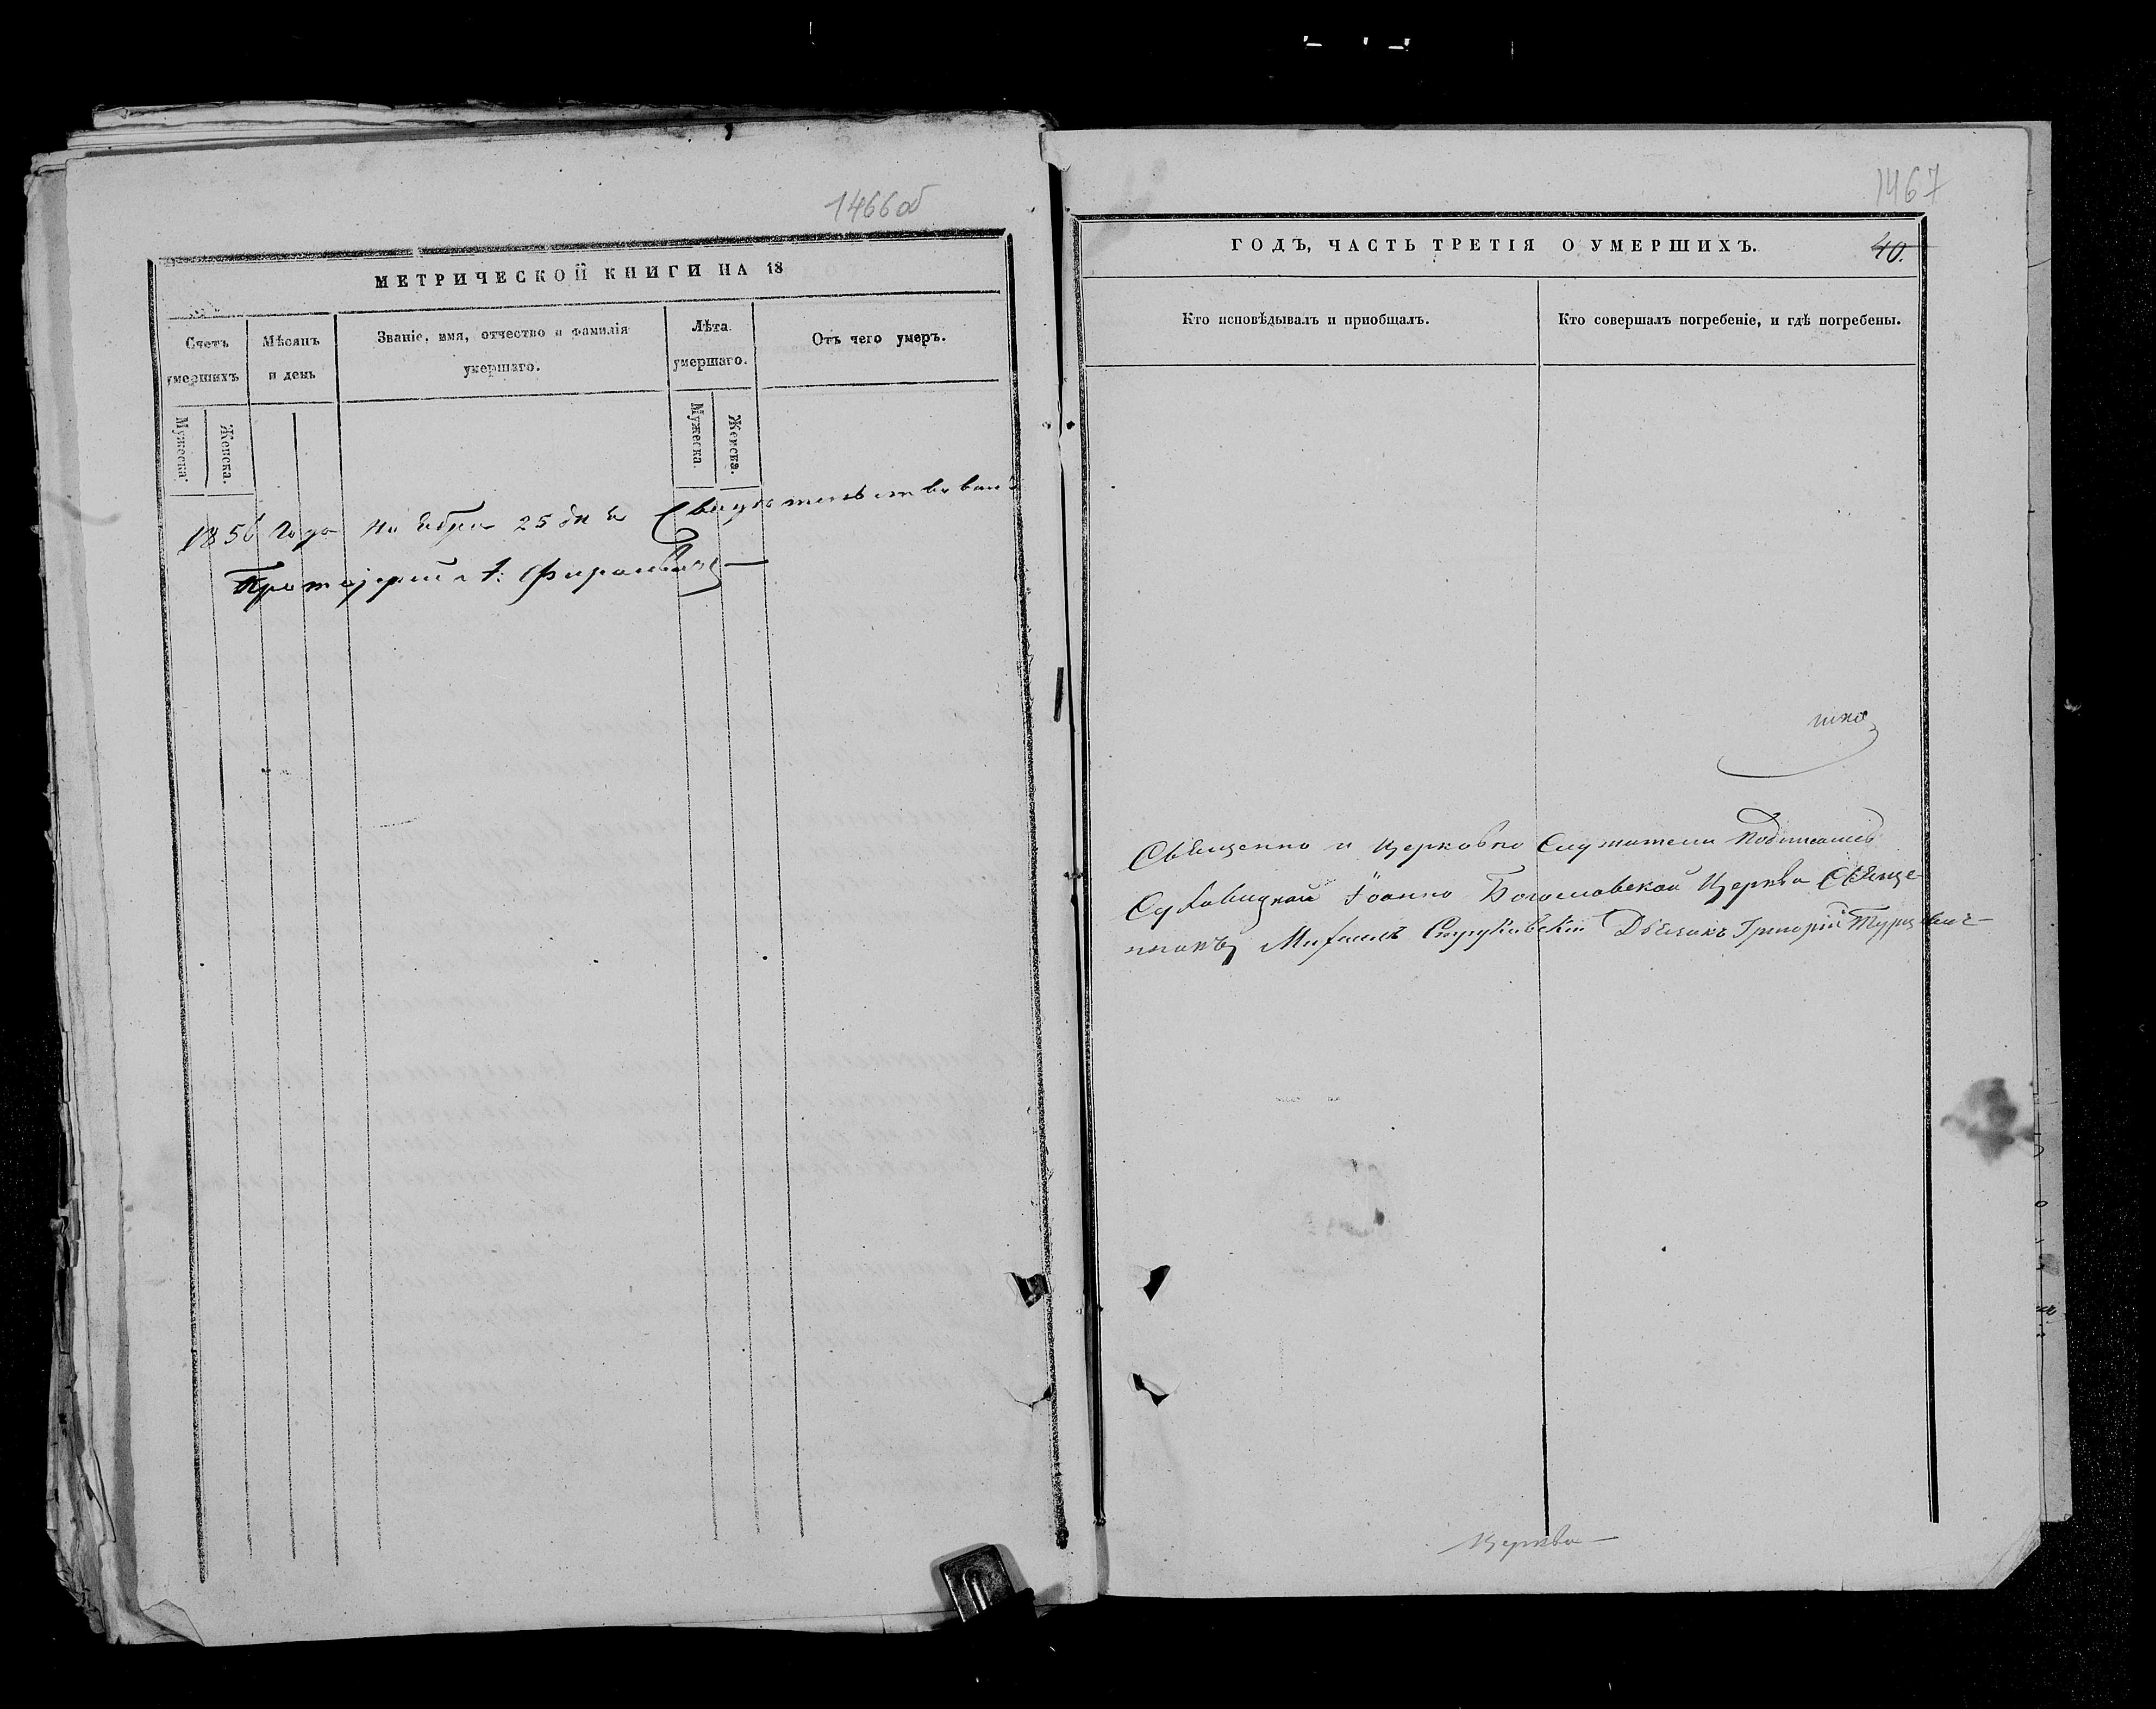 1466об
МЕТРИЧЕСКОЙ КНИГИ НА 18
Счетъ умершихъ
Мѣсяцъ и день
Званіе, имя, отчество и фамилія умершаго.
Лѣта умершаго.
Отъ чего умеръ.
Мужеска
Женска.
Мужеска
Женска.
1856 года Ноября 25 дня Свидетельствовалъ
Протоіерей А:
1467
ГОДЪ, ЧАСТЬ ТРЕТІЯ О УМЕРШИХЪ.
40.
Кто исповѣдывалъ и пріобщалъ.
Кто совершалъ погребеніе, и гдѣ погребены.
Священно и Церковно Служители
Іоанно Богословской Церкви Священ
никъ Михаилъ Дьячокъ Григорій
Церкви